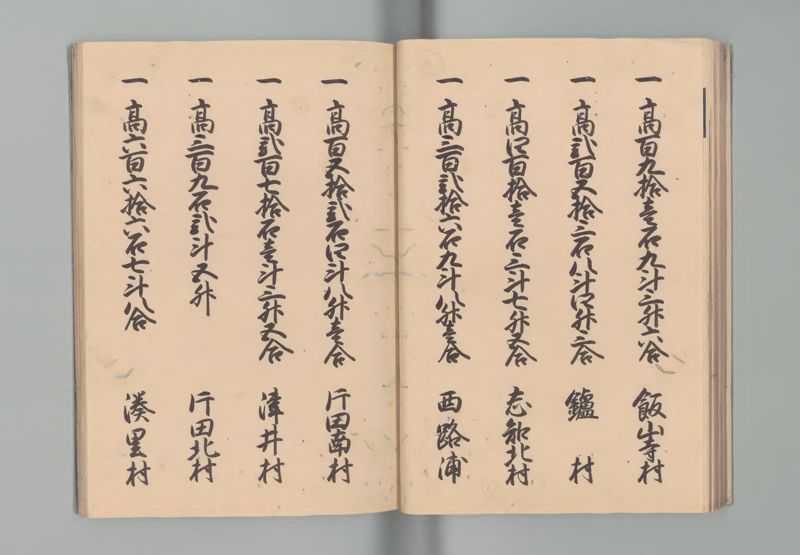 一 高百九拾壱石九斗三升六合 飯山寺村
一 高弐百五拾三石八斗四升三合 鑪村
一 高四百拾壱石三斗七升五合 志知北村
一 高三百弐拾六石九斗八升壱合 西路浦
一 高百五拾弐石四斗八升壱合 片田南村
一 高弐百七拾石壱斗三升五合 津井村
一 高三百九石弐斗五升 片田北村
一 高六百六拾六石七斗八合 湊里村